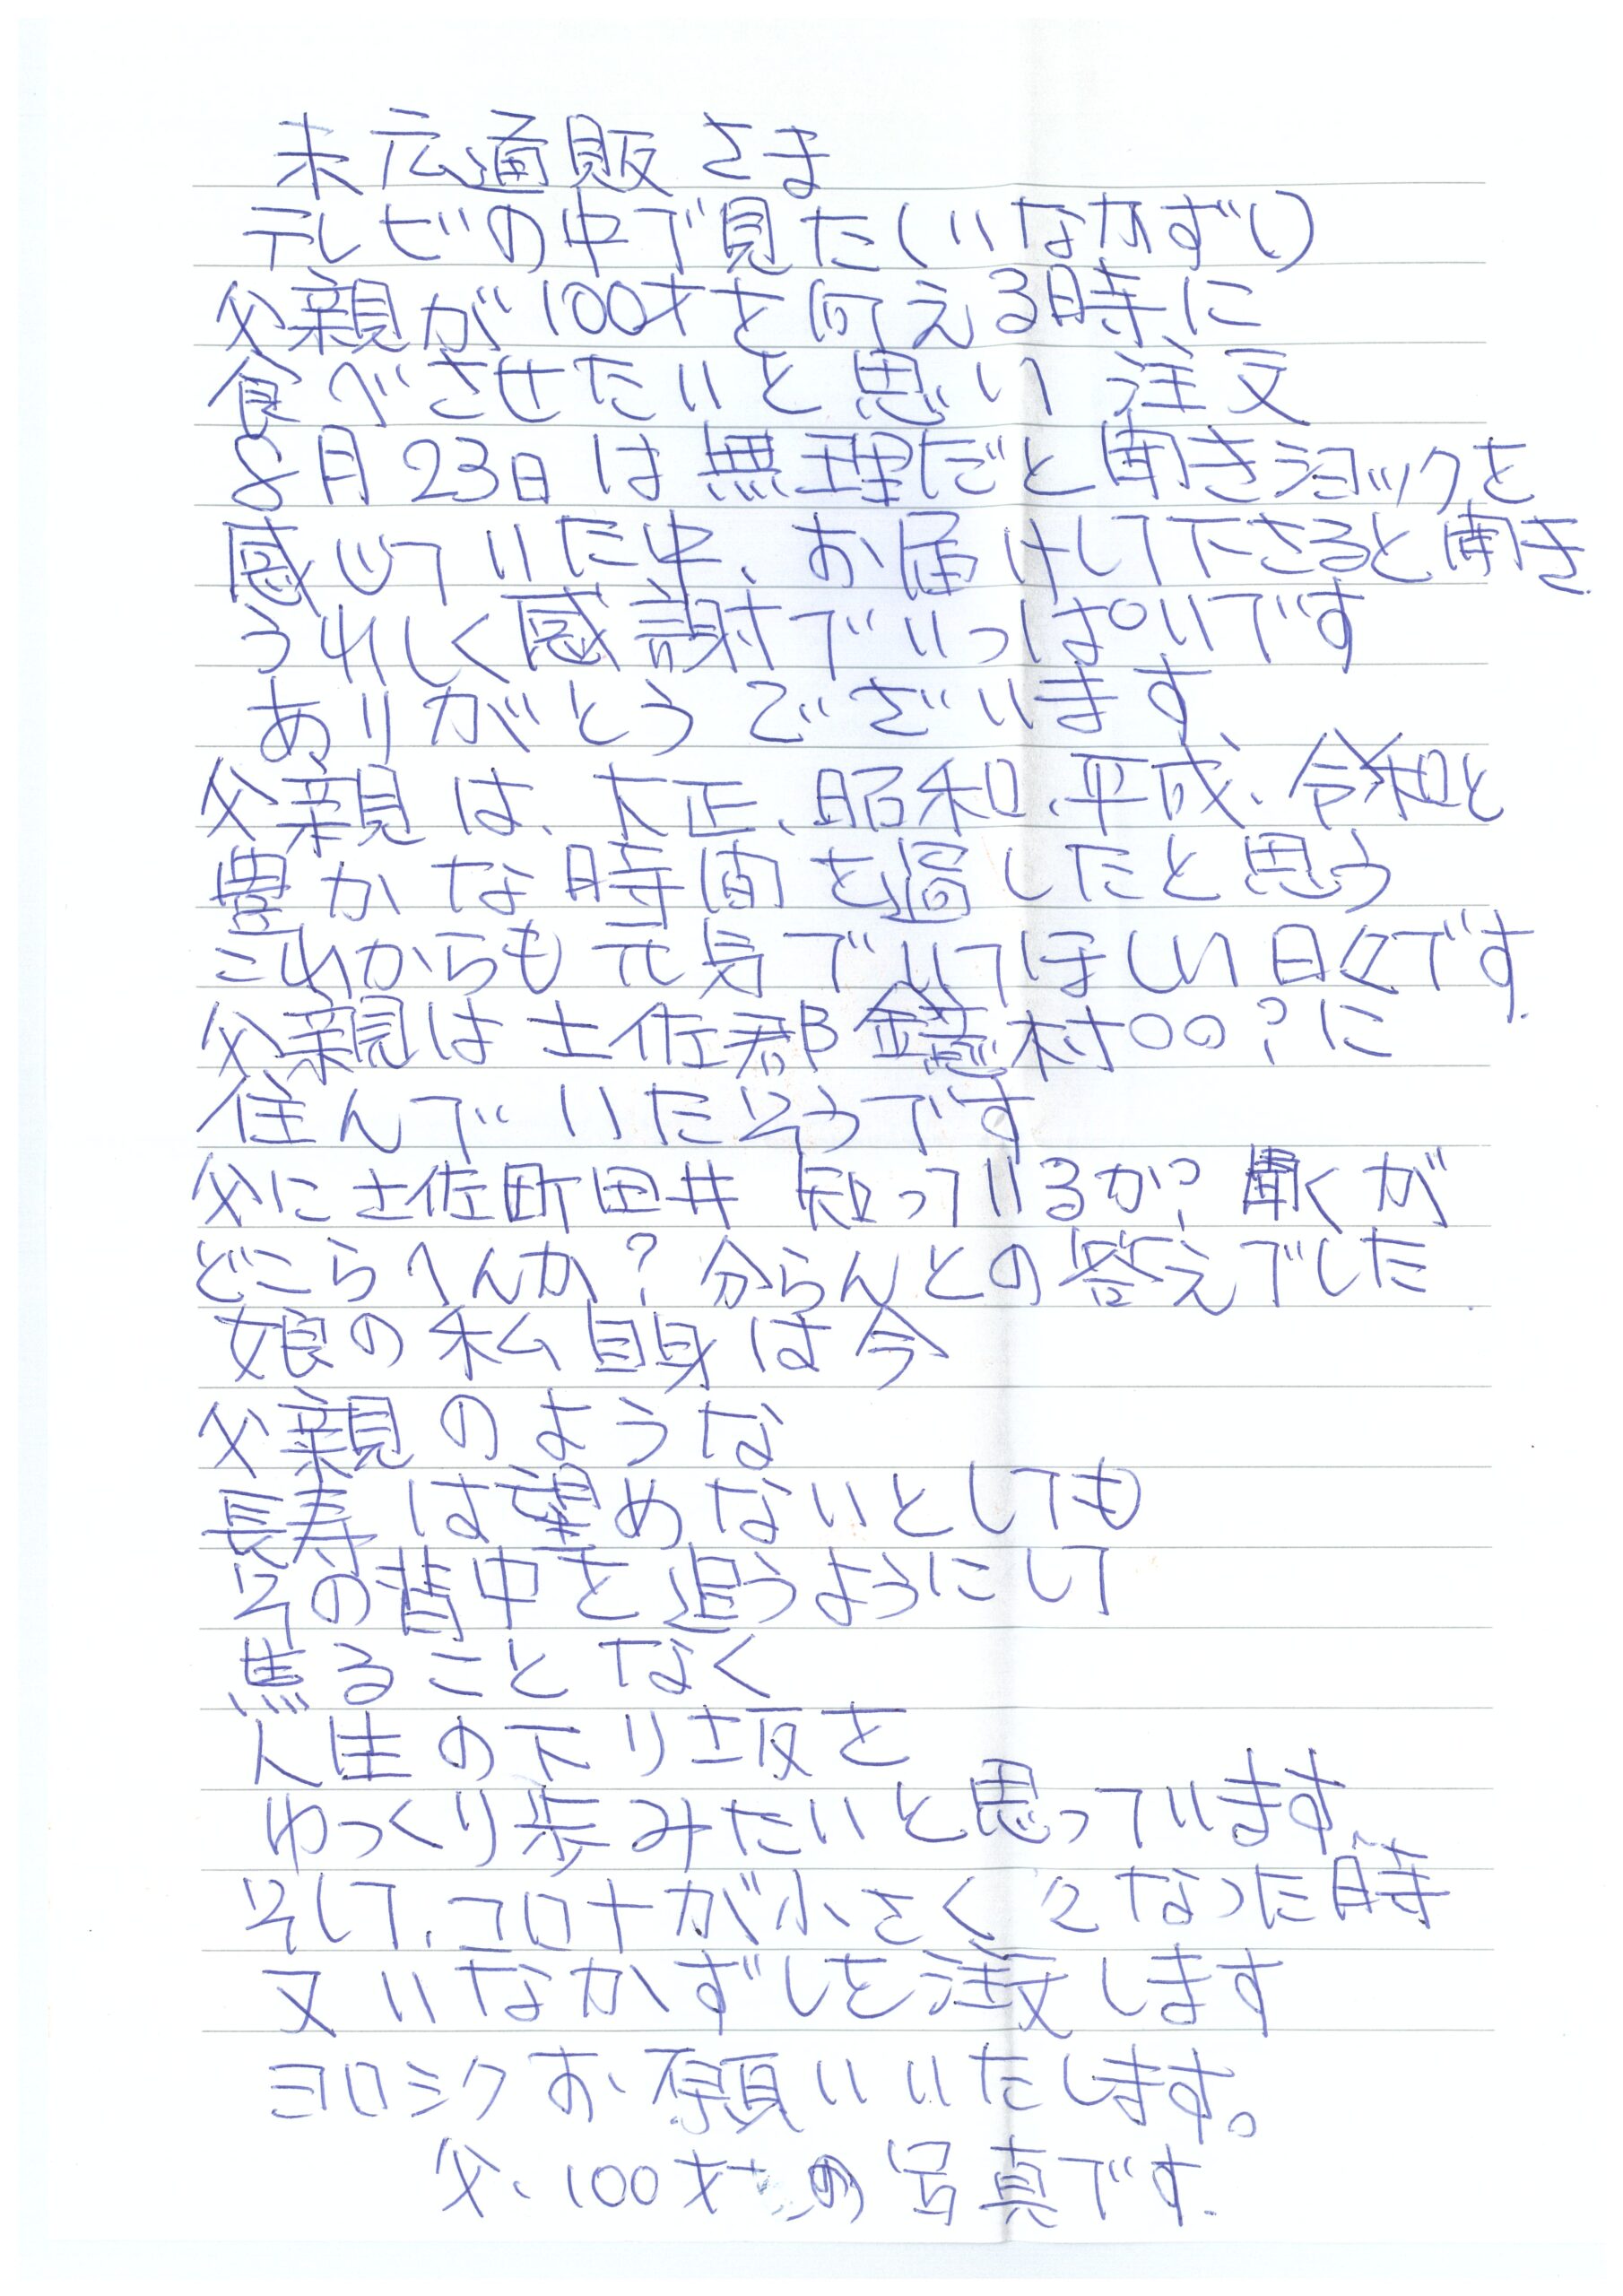 末広通販さま
テレビの中で見た(いなかずし)
父親が100才を向える時に
食べさせたいと思い注文
8月23日は無理だと聞きショックを
感じていた中、お届けして下さると聞き
うれしく感謝でいっぱいです
ありがとうございます
父親は、大正、昭和、平成、令和と
豊かな時間を過したと思う
これからも元気でいてほしい日々です.
父親は土佐郡鏡村〇〇?に
住んでいたそうです
父に土佐町田井知っているか?聞くが
どこらへんか?分らんとの答えでした.
娘の私自身は今
父親のような
長寿は望めないとしても
その背中を追うようにして
焦ることなく
人生の下り坂を
ゆっくり歩みたいと思っています.
そして、コロナが小さくなった時
又いなかずしを注文します
ヨロシクお願いいたします。
父、100才の写真です.